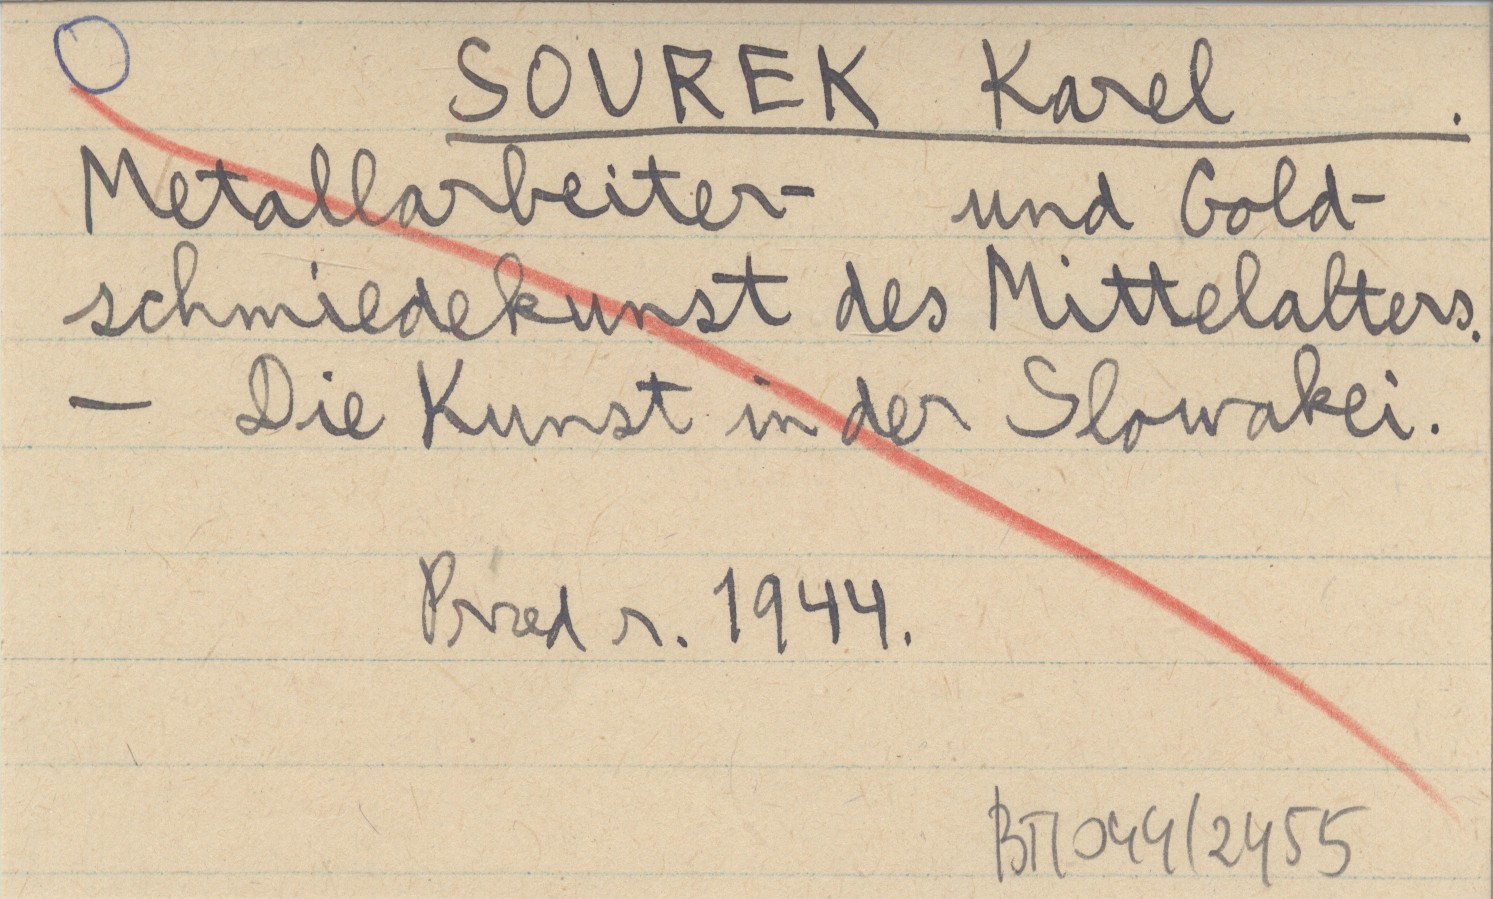 SOUREK Karel .
Metallarbeiter- und Gold-
schmiedekunst des Mittelalters.
— Die Kunst in der Slowakei.
Przed r. 1944.
BTI044/2455